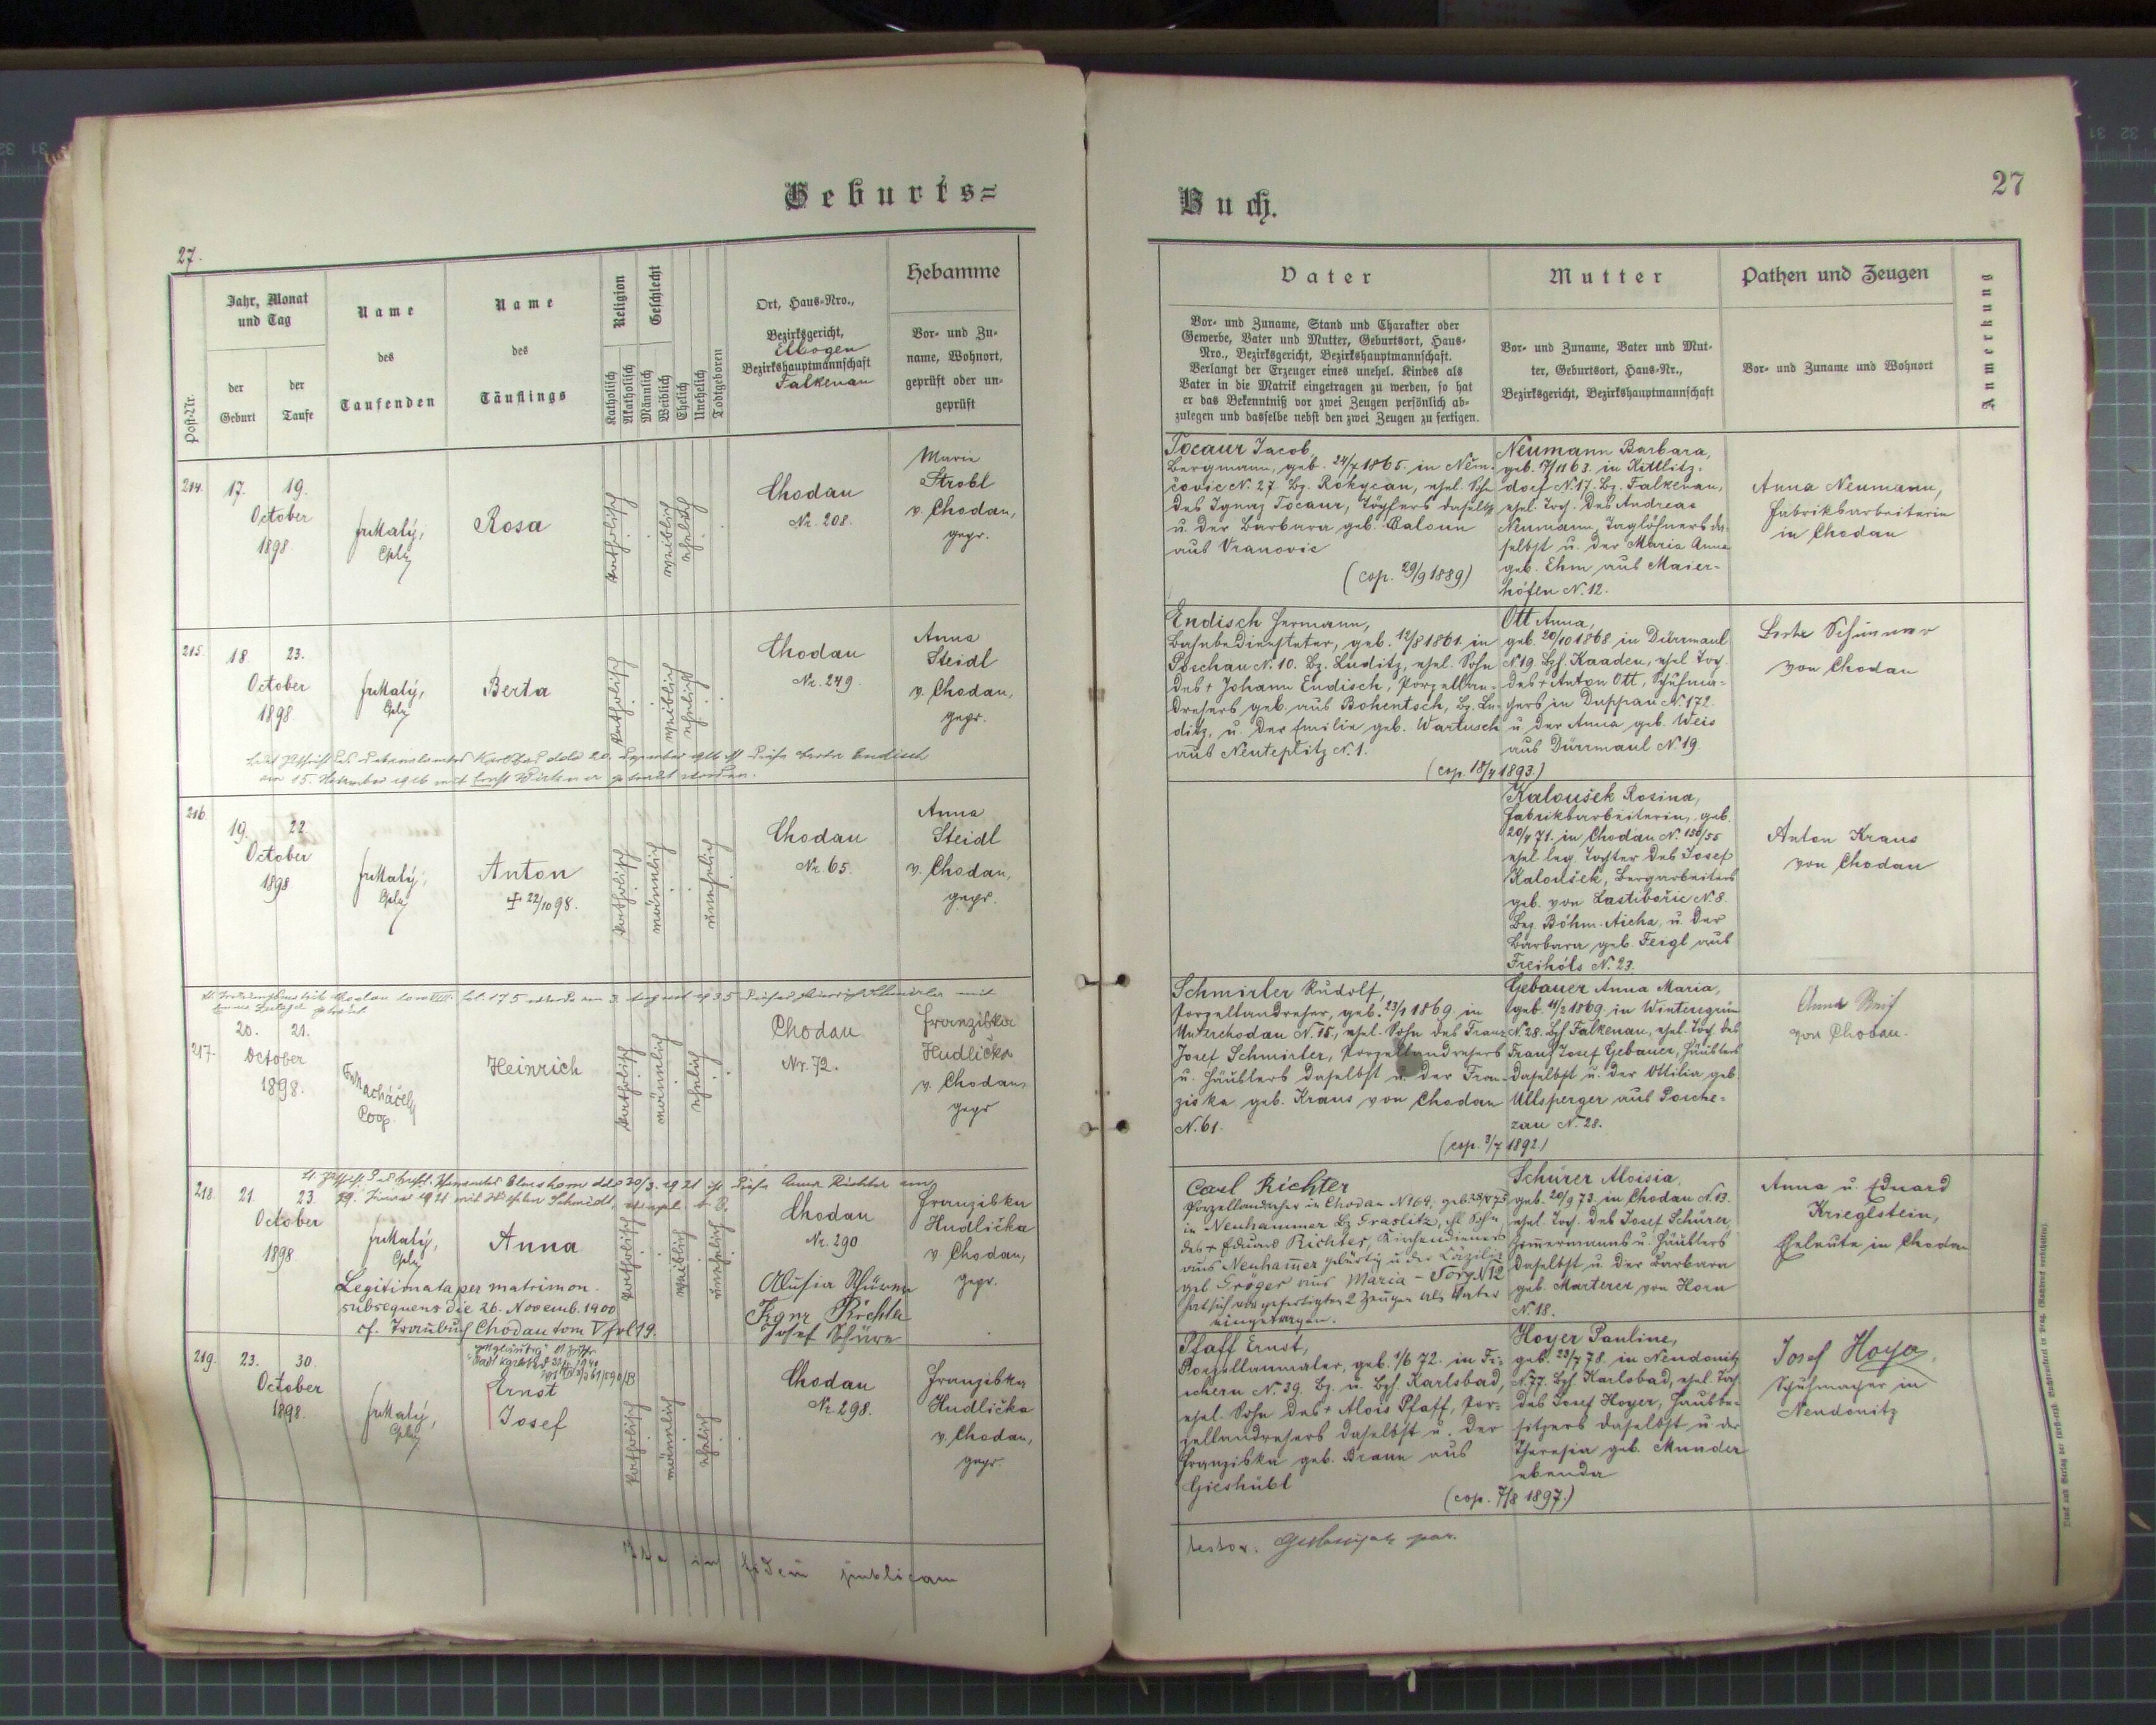 Geburts=
Buch.
27
27.
Post-Nr.
Jahr, Monat
und Tag
der
Geburt
der
Taufe
Name
des
Taufenden
Name
des
Täuflings
Religion
Katholisch
Akatholisch
Geschlecht
Männlich
Weiblich
Ehelich
Unehelich
Todtgeboren
Ort, Haus-Nro.,
Bezirksgericht,
Elbogen
Bezirkshauptmannschaft
Falkenau
Hebamme
Vor- und Zu-
name, Wohnort,
geprüft oder un-
geprüft
Vater
Vor- und Zuname, Stand und Charakter oder
Gewerbe, Vater und Mutter, Geburtsort, Haus-
Nro., Bezirksgericht, Bezirkshauptmannschaft.
Verlangt der Erzeuger eines unehel. Kindes als
Vater in die Matrik eingetragen zu werden, so hat
er das Bekenntniß vor zwei Zeugen persönlich ab-
zulegen und dasselbe nebst den zwei Zeugen zu fertigen.
Mutter
Vor- und Zuname, Vater und Mut-
ter, Geburtsort, Haus-Nr.,
Bezirksgericht, Bezirkshauptmannschaft
Pathen und Zeugen
Vor- und Zuname und Wohnort
Anmerkung
214.
17. 19.
October
1898
Malý,
Rosa
katholisch
weiblich
ehelich
Chodau
Nr. 208.
Marie
Strobl
v. Chodau,
gepr.
Tocaur Jacob,
Bergmann, geb. 24/7 1865. in Něm-
čovic N. 27 Bz. Rokycan, ehel. Sohn
des Ignaz Tocaur, Töpfers daselbst
u. der Barbara geb. Baloun
aus Vranovic
(cop. 29/9 1889)
Neumann Barbara,
geb. 17/11 63. in Kittlitz-
dorf N. 17. Bz. Falkenau,
ehel. Toch. des Andreas
Neumann, Taglöhners da-
selbst u. der Maria Anna
geb. Ehm aus Maier-
höfen N. 12.
Anna Neumann,
Fabrikbarbeiterin
in Chodau
215.
18. 23.
October
1898.
Malý,
Berta
katholisch
weiblich
ehelich
Chodau
Nr. 249.
Anna
Steidl
v. Chodau,
gepr.
Endisch Hermann,
Bahnbediensteter, geb. 12/8 1861. in
Poschau N. 10. Bz. Luditz, ehel. Sohn
des + Johann Endisch, Porzellan-
drehers geb. aus Bohentsch, Bz. Lu-
ditz, u. der Emilie geb. Wartusch
aus Neuteplitz N. 1.
(cop. 18/4 1893.)
Ott Anna,
geb. 20/10 1868 in Dürrmaul
N. 19. Bzh. Kaaden, ehel Toch.
des + Anton Ott, Schuhma-
chers in Duppau N. 172.
u. der Anna geb. Weis
aus Dürrmaul N. 19.
von Chodau
216.
19. 22.
October
1898
Malý,
Anton
+ 22/10 98.
katholisch
männlich
unehelich
Chodau
Nr. 65.
Anna
Steidl
v. Chodau,
gepr.
Kaloušek Rosina,
Fabrikbarbeiterin, geb.
20/4 71. in Chodau N. 156/55
ehel. leg. Tochter des Josef
Kaloušek, Bergarbeiters
geb. von Lastibořic N. 8.
Bez. Böhm. Aicha, u. der
Barbara geb. Feigl aus
Freihöls N. 23.
Anton Kraus
von Chodau
217.
20. 21.
October
1898.
Coop.
Heinrich
katholisch
männlich
ehelich
Chodau
Nr. 72.
Franziska
Hudlička
v. Chodau
gepr
Schmirler Rudolf,
Porzellandreher, geb. 23/1 1869. in
Unterchodau N. 15., ehel. Sohn des Franz
Josef Schmirler, Porzellandrehers
u. Häuslers daselbst u. der Fran-
ziska geb. Kraus von Chodau
N. 61.
(cop. 3/7 1892.)
Gebauer Anna Maria,
geb. 11/2 1869. in Wintersgrün
N. 28. Bzh Falkenau, ehel. Toch. des
Franz Josef Gebauer, Häuslers
daselbst u. der Ottilia geb.
Ullsperger aus Posche-
zau N. 28.
von Chodau.
218.
21. 23.
October
1898.
Malý,
Anna
katholisch
weiblich
unehelich
Legitimata per matrimon.
subsequens die 26. Novemb. 1900
cf. Traubuch Chodau tom V fol 19.
Chodau
Nr. 290
Franziska
Hudlička
v. Chodau,
gepr.
Richter
Josef Schürer
Carl Richter
Porzellandreher in Chodau N 169, geb.
in Neuhammer Bz Graslitz, ehl Sohn
des + Eduard Richter, Kirchendieners
aus Neuhamer gebürtig u. der Cäzilia
geb. Gröger aus Maria-Sorg N 12
hat sich vor gefertigten 2 Zeugen als Vater
eingetragen.
Schürer Aloisia,
geb. 20/9 73. in Chodau N. 13.
ehel. Toch. des Josef Schürer,
Zimermanns u. Häuslers
daselbst u. der Barbara
geb. Marterer von Horn
N. 18.
Anna u. Eduard
Krieglstein,
Eheleute in Chodau
219.
23. 30.
October
1898.
Malý,
Ernst
Josef
katholisch
männlich
ehelich
Chodau
Nr. 298.
Franziska
Hudlička
v. Chodau,
gepr.
Pfaff Ernst,
Porzellanmaler, geb. 1/6 72. in Fi-
schern N. 39. Bz. u. Bzh. Karlsbad,
ehel. Sohn des + Alois Pfaff, Por-
zellandrehers daselbst u. der
Franziska geb. Braun aus
Gieshübl
(cop. 7/8 1897.)
Hoyer Pauline,
geb. 23/7 78. in Neudonitz
N. 77. Bzh. Karlsbad, ehel. Toch
des Josef Hoyer, Hausbe-
sitzers daselbst u der
Theresia geb. Munder
ebenda
Josef Hoyer,
Schuhmacher in
Neudonitz
fidem publicam
testor.